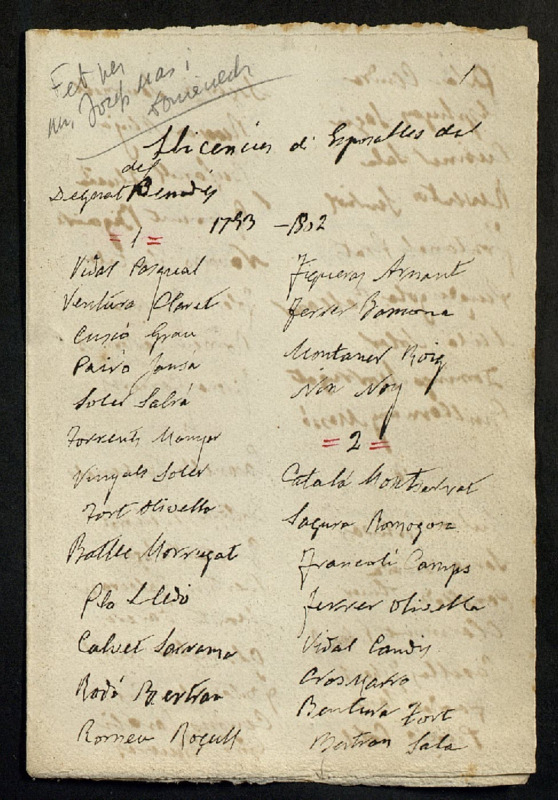 Fet per
mn. Josep Mas i
Domenech
1
Llicencies di Esposalles del
del
Deganat Penedés
1793 - 1802
= 1 =
Vidal Pasqual
Ventura Claret
Cusió Grau
Pairó Jansa
Soler Salvá
Torrents Manyer
Vinyals Soler
Fort Olivella
Batlle Morragat
Pla Lledó
Calvet Sarrama
Rodó Bertran
Romeu Rogull
Figueras Arnant
Ferrer Ramona
Montaner Roig
Nin Noy
= 2 =
Catalá Montserrat
Sagura Romogosa
Francoli Camps
Ferrer Olivella
Vidal Candis
Cros Marro
Bentura Fort
Bertran Sala